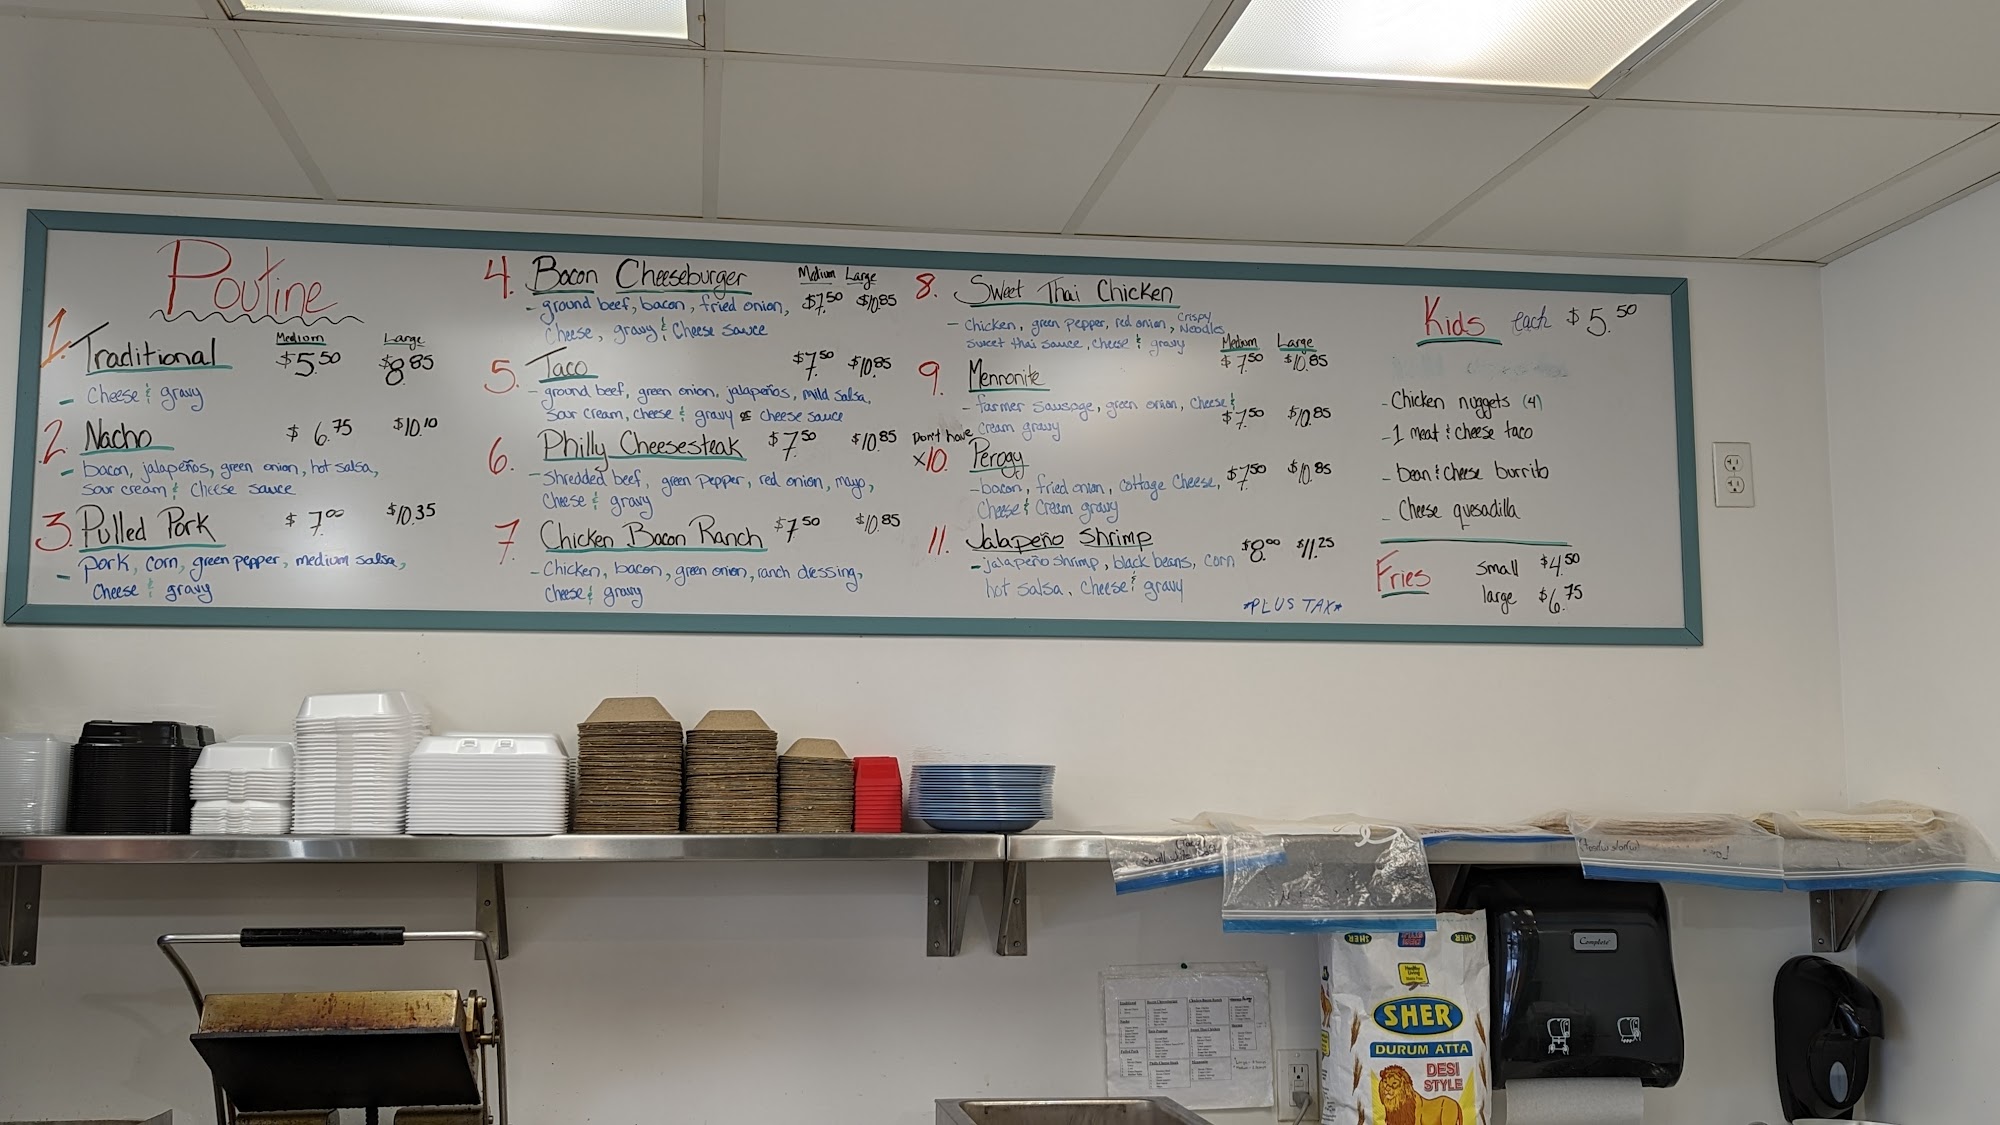 Poutine
Medium Large
1. Traditional $5.50 $8.85
- Cheese & gravy
2. Nacho $6.75 $10.10
- bacon, jalapeños, green onion, hot salsa,
sour cream & cheese sauce
3. Pulled Pork $7.00 $10.35
- pork, corn, green pepper, medium salsa,
cheese & gravy
Medium Large
4. Bacon Cheeseburger $7.50 $10.85
- ground beef, bacon, fried onion,
cheese, gravy & cheese sauce
5. Taco $7.50 $10.85
- ground beef, green onion, jalapeños, mild salsa,
sour cream, cheese & gravy or cheese sauce
6. Philly Cheesesteak $7.50 $10.85
- Shredded beef, green pepper, red onion, mayo,
cheese & gravy
7. Chicken Bacon Ranch $7.50 $10.85
- Chicken, bacon, green onion, ranch dressing,
cheese & gravy
8. Sweet Thai Chicken
- Chicken, green pepper, red onion, crispy Noodles,
sweet thai sauce, cheese & gravy
Medium Large
$7.50 $10.85
9. Mennonite
- farmer sausage, green onion, cheese &
cream gravy
$7.50 $10.85
Don't have
x10. Perogy
- bacon, fried onion, cottage cheese,
cheese & cream gravy
$7.50 $10.85
11. Jalapeño Shrimp $8.00 $11.25
- jalapeño shrimp, black beans, corn
hot salsa, cheese & gravy
*PLUS TAX*
Kids each $5.50
- Chicken nuggets (4)
- 1 meat & cheese taco
- bean & cheese burrito
- Cheese quesadilla
Fries small $4.50
large $6.75
Complete
SHER
SHER
SHER
DURUM ATTA
DESI
STYLE